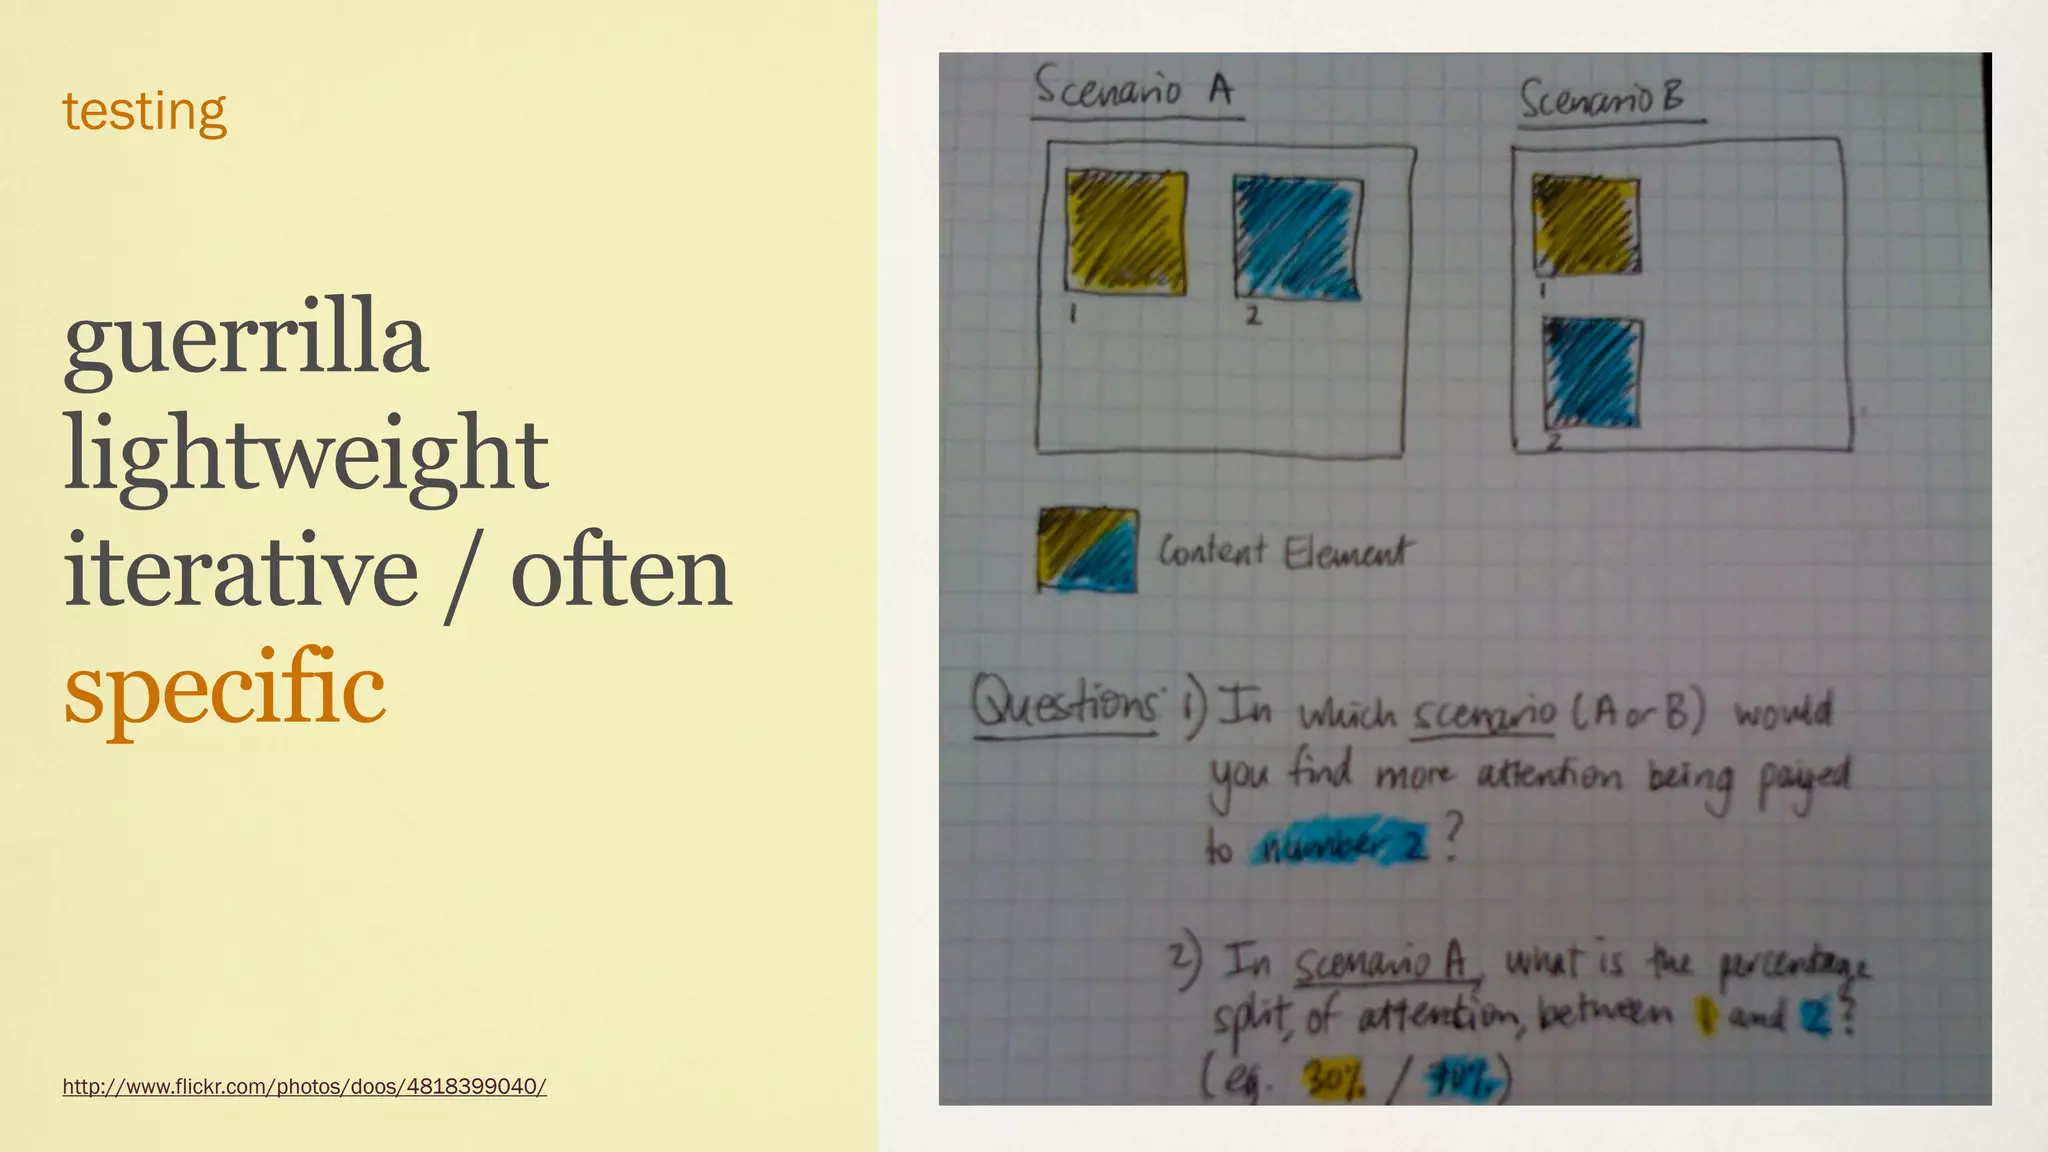 testing
guerrilla
lightweight
iterative / often
specific
http://www.flickr.com/photos/doos/4818399040/
Scenario A
Scenario B
1
2
1
2
Content Element
Questions: 1) In which scenario (A or B) would
you find more attention being payed
to number 2?
2) In scenario A, what is the percentage
split, of attention, between 1 and 2?
(eg. 30% / 70%)